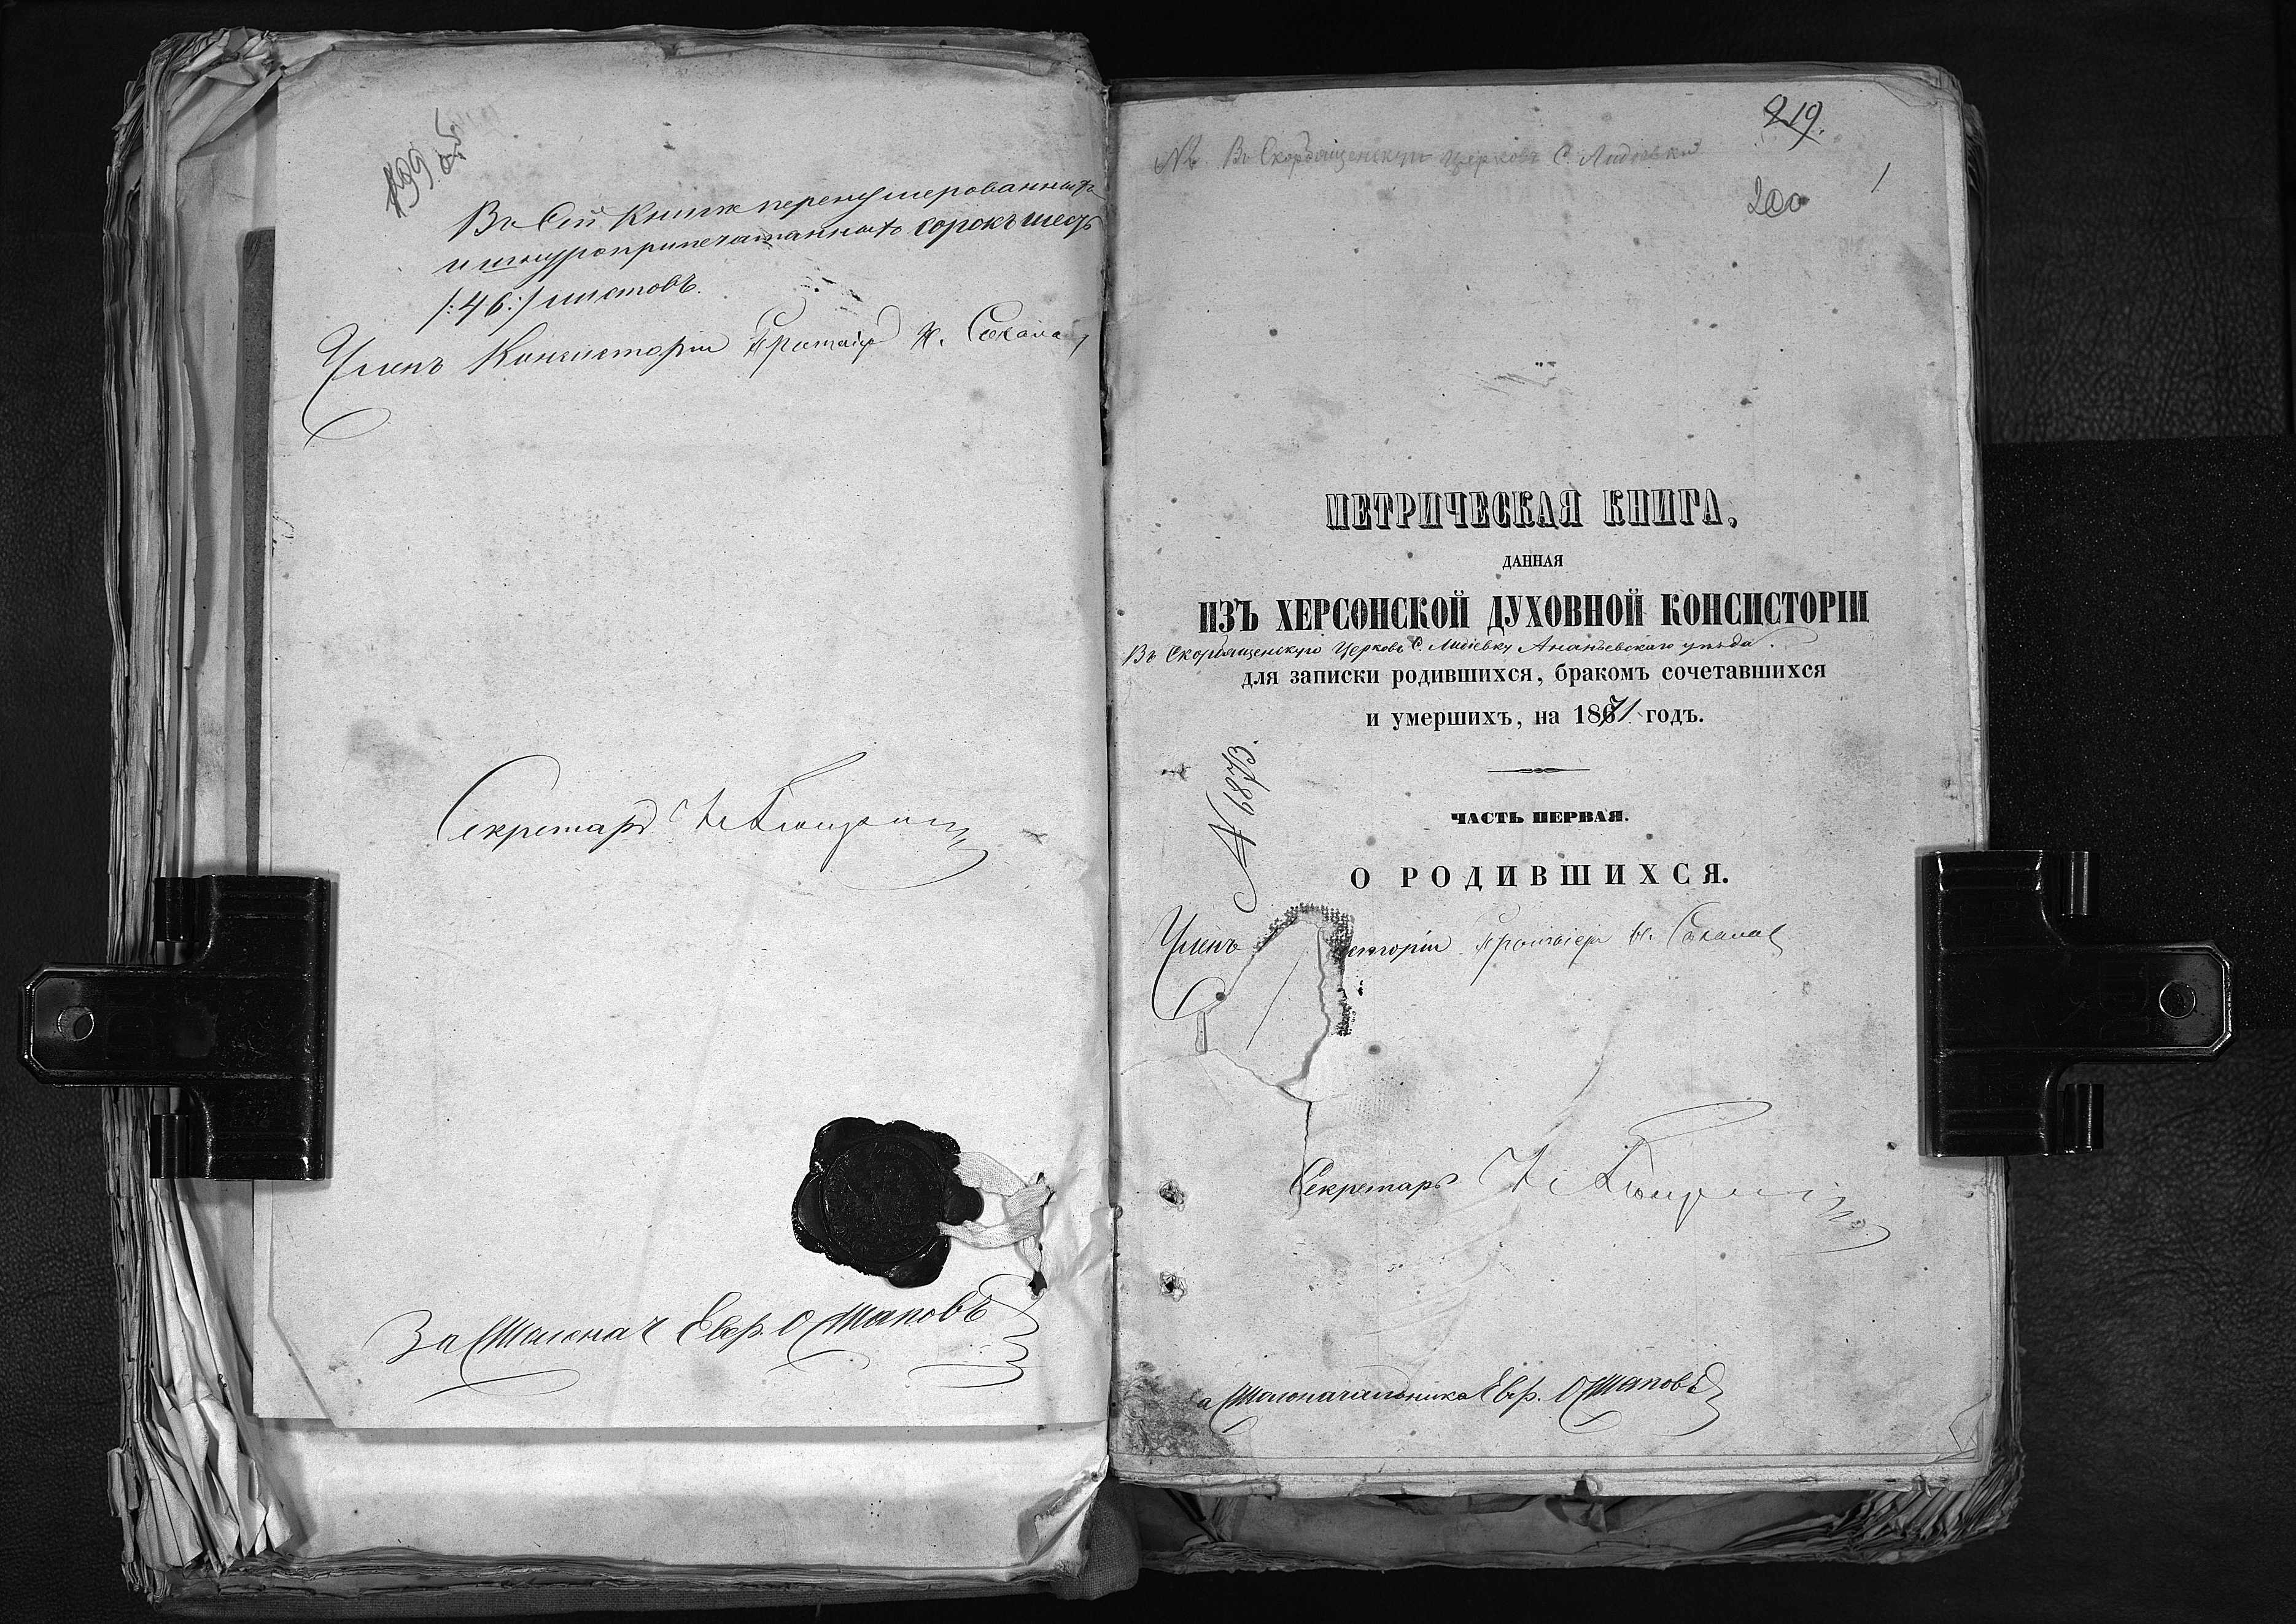 199 об
Въ Сей Книгѣ перенумерованныхъ
и шнуроприпечатанныхъ сорокъ шесть
/:46:/ листовъ.
Членъ Консисторіи Протоіер Н. Соколов
Секретарь
За Столонач Евф. Остаповъ
219.
1
№ Въ Скорбященскую церковь С. Лидіевки
200
МЕТРИЧЕСКАЯ КНИГА,
ДАННАЯ
ИЗЪ ХЕРСОНСКОЙ ДУХОВНОЙ КОНСИСТОРІИ
Въ Скорбященскую Церковь С. Лидіевку Ананьевскаго уѣзда.
для записки родившихся, бракомъ сочетавшихся
и умершихъ, на 1871 годъ.
№ 6873.
ЧАСТЬ ПЕРВАЯ.
О РОДИВШИХСЯ.
Членъ исторіи Протоіерей Н. Соколов
Секретарь
а Столоначальника Евф. Остаповъ